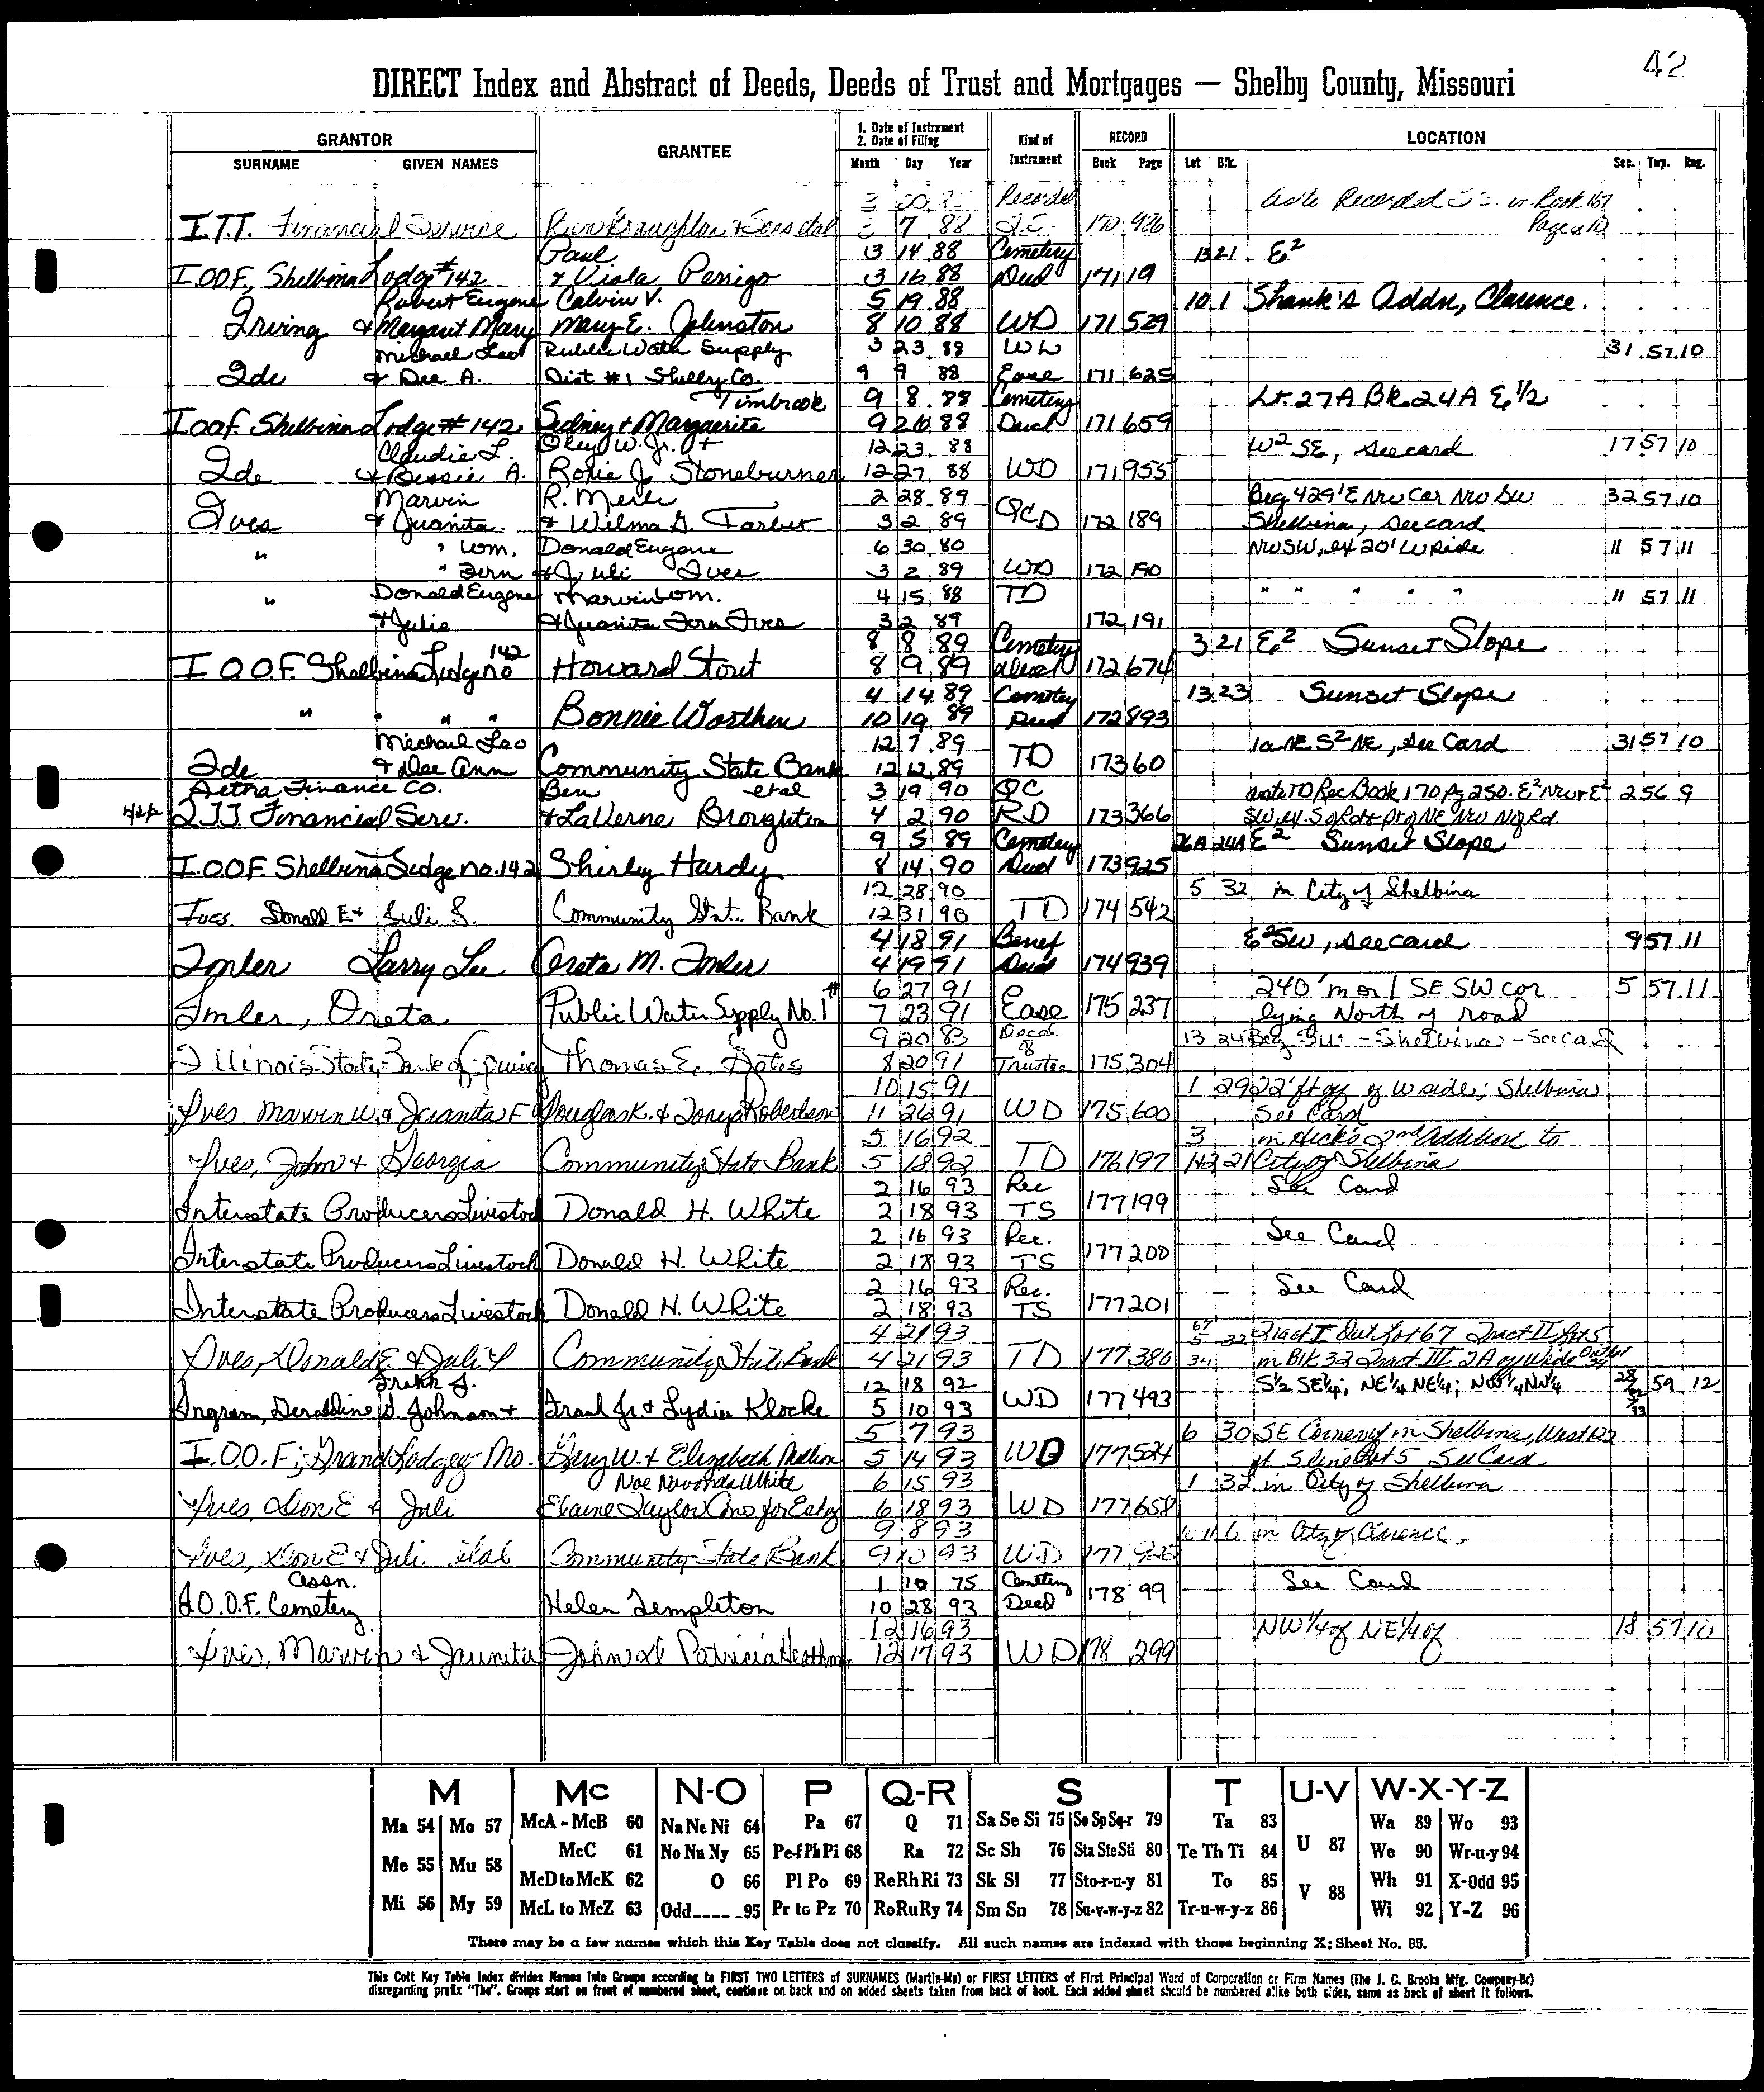 42
DIRECT Index and Abstract of Deeds, Deeds of Trust and Mortgages — Shelby County, Missouri
GRANTOR GRANTEE 1. Date of Instrument 2. Date of Filing Kind of Instrument RECORD LOCATION
SURNAME GIVEN NAMES Month Day Year Book Page Lot Blk. Sec. Twp. Rng.
3 Recorded as to Recorded in Book 167
I.T.T. Financial Service Ben Broughton & Sons etal 7 88 170 936 Page
Paul 3 14 88 Cemetery 13 21 E²
I.O.O.F., Shelbina Lodge #142 & Viola Perrigo 3 16 88 Deed 171 19
Robert Eugene Calvin V. 5 19 88 10 1 Shank's Addn, Clarence.
Irving & Margaret Mary Mary E. Johnston 8 10 88 WD 171 529
Michael Leo Public Water Supply 3 23 88 31 57 10
Ide & Dee A. Dist #1 Shelby Co. 9 9 88 Ease 171 625
Timbrook 9 8 88 Cemetery Lt. 27A Bk. 24A E 1/2
I.O.O.F. Shelbina Lodge # 142 Sidney & Marguerite 9 26 88 Deed 171 659
Claudie L. Oley W. Jr. & 12 23 88 W² SE, see card 17 57 10
Ide & Bessie A. Roxie J. Stoneburner 12 27 88 WD 171 955
Marvin R. Merle 2 28 89 Beg 429' E NW Cor NW SW 32 57 10
Ives & Juanita. & Wilma G. Tarbet 3 2 89 QCD 172 189 Shelbina, see card
" " Wm. Donald Eugene 6 30 80 NW SW, ex 20' W side 11 57 11
" Fern & Juli Ives 3 2 89 WD 172 190
" Donald Eugene Marvin Wm. 4 15 88 TD " " " " " 11 57 11
& Julie & Juanita Fern Ives 3 2 89 172 191
142 8 8 89 Cemetery 3 21 E² Sunset Slope
I.O.O.F. Shelbina Lodge no Howard Stout 8 9 89 Deed 172 674
4 14 89 Cemetery 13 23 Sunset Slope
" " " " Bonnie Worthen 10 19 89 Deed 172 893
Michael Leo 12 7 89 1a NE S² NE, See Card 31 57 10
Ide & Dee Ann Community State Bank 12 12 89 TD 173 60
Aetna Finance Co. Ben etal 3 19 90 QC as to TD Rec Book 170 Pg 250. E² NW & E² 2 56 9
I.T.T. Financial Serv. & LaVerne Broughton 4 2 90 RD 173 366 SW, ex. S of Rd & pt of NE NW N of Rd.
9 5 89 Cemetery 26A 24A E² Sunset Slope
I.O.O.F. Shelbina Lodge no. 142 Shirley Hardy 8 14 90 Deed 173 925
12 28 90 5 32 in City of Shelbina
Ives. Donald E & Juli S. Community State Bank 12 31 90 TD 174 542
4 18 91 Benef E² SW, see card 9 57 11
Imler Larry Lee Oreta M. Imler 4 19 91 Deed 174 939
6 27 91 240' m or l SE SW cor 5 57 11
Imler, Oreta Public Water Supply No. 1 # 7 23 91 Ease 175 237 lying North of road
9 20 83 Deed of 13 24 Beg SW - Shelbina - See Card
Illinois State Bank of Quincy Thomas E. Oates 8 20 91 Trustee 175 304
10 15 91 1 29 22' ft off of W side; Shelbina
Ives, Marvin W & Juanita F Douglas K. & Tonya Robertson 11 26 91 WD 175 600 See Card
5 16 92 3 in Hick's 2nd Addition to
Ives, John & Georgia Community State Bank 5 18 92 TD 176 197 21 City of Shelbina
2 16 93 Rec See Card
Interstate Producers Livestock Donald H. White 2 18 93 TS 177 199
2 16 93 Rec. See Card
Interstate Producers Livestock Donald H. White 2 18 93 TS 177 200
2 16 93 Rec. See Card
Interstate Producers Livestock Donald H. White 2 18 93 TS 177 201
4 21 93 67 5 32 Tract I Out Lot 67 Tract II Lot 5
Ives, Donald E & Juli S Community State Bank 4 21 93 TD 177 386 34 in Blk 32 Tract III 2A of W side Outlot 34
Frank J. 12 18 92 S½ SE¼; NE¼ NE¼; NW¼ NW¼ 28 32 33 59 12
Ingram, Geraldine D. Johnson & Frank Jr. & Lydia Klocke 5 10 93 WD 177 493
5 7 93 6 30 SE Corner in Shelbina, West
I.O.O.F; Grand Lodge of Mo. Gary W. & Elizabeth 5 14 93 WD 177 524 S line Lot 5 See Card
White 6 15 93 1 32 in City of Shelbina
Ives, Don E & Juli Elaine Taylor 6 18 93 WD 177 658
9 8 93 10 11 6 in City of Clarence
Ives, Don E & Juli etal Community State Bank 9 10 93 W.D 177
Assn. 1 10 75 Cemetery See Card
I.O.O.F. Cemetery Helen Templeton 10 28 93 Deed 178 99
12 16 93 NW 1/4 of NE 1/4 of 18 57 10
Ives, Marvin & Jaunita John & Patricia 12 17 93 WD 178 299
M Mc N-O P Q-R S T U-V W-X-Y-Z
Ma 54 Mo 57 McA - McB 60 Na Ne Ni 64 Pa 67 Q 71 Sa Se Si 75 So Sp Sq-r 79 Ta 83 U 87 Wa 89 Wo 93
Me 55 Mu 58 McC 61 No Nu Ny 65 Pe-f Ph Pi 68 Ra 72 Sc Sh 76 Sta Ste Sti 80 Te Th Ti 84 V 88 We 90 Wr-u-y 94
McD to McK 62 O 66 Pl Po 69 Re Rh Ri 73 Sk Sl 77 Sto-r-u-y 81 To 85 Wh 91 X-Odd 95
Mi 56 My 59 McL to McZ 63 Odd 95 Pr to Pz 70 Ro Ru Ry 74 Sm Sn 78 Su-v-w-y-z 82 Tr-u-w-y-z 86 Wi 92 Y-Z 96
There may be a few names which this Key Table does not classify. All such names are indexed with those beginning X; Sheet No. 95.
This Cott Key Table Index divides Names into Groups according to FIRST TWO LETTERS of SURNAMES (Martin-Ma) or FIRST LETTERS of First Principal Word of Corporation or Firm Names (The J. C. Brooks Mfg. Company-Br)
disregarding prefix "The". Groups start on front of numbered sheet, continue on back and on added sheets taken from back of book. Each added sheet should be numbered alike both sides, same as back of sheet it follows.